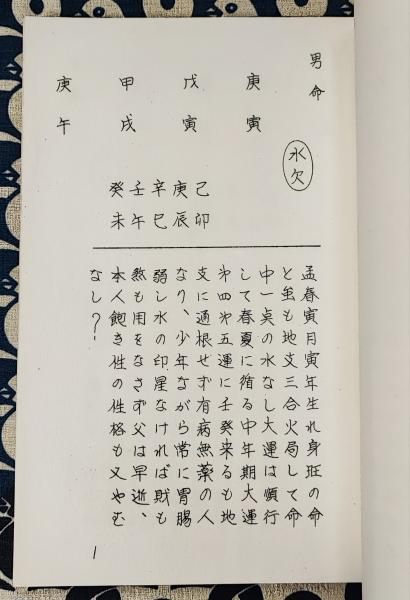 男命
庚寅
水欠
戊寅
甲戌
庚午
己卯
庚辰
辛巳
壬午
癸未
孟春寅月寅年生れ身旺の命
と虽も地支三合火局して命
中一点の水なし大運は順行
して春夏に循る中年期大運
第四第五運に壬癸来るも地
支に通根せず有病無薬の人
なり、少年ながら常に胃腸
弱し水の印星なければ財も
煞も用をなさず父は早逝、
本人飽き性の性格も又やむ
なし?!
1